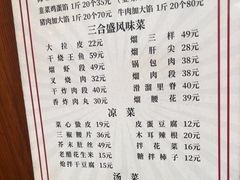 韭菜鸡蛋馅 1斤 20个35元
猪肉加大馅 1斤 20个70元 牛肉加大馅 1斤 20个80元
三合盛风味菜
大拉皮 22元 熘三样 49元
干烧王鱼 59元 熘肝尖 28元
熘虾段 49元 锅包肉 38元
叉烧肉 32元 熘肉段 38元
干炸肉段 40元 滑溜里脊 39元
香炸肉丸 30元 熘腰花 39元
凉菜
菜心做皮 19元 皮蛋豆腐 12元
三椒腰片 36元 木耳辣根 20元
芥末肚丝 49元 拌花菜 16元
老醋花生米 32元 糖拌柿子 12元
炝拌干豆腐 15元
汤菜